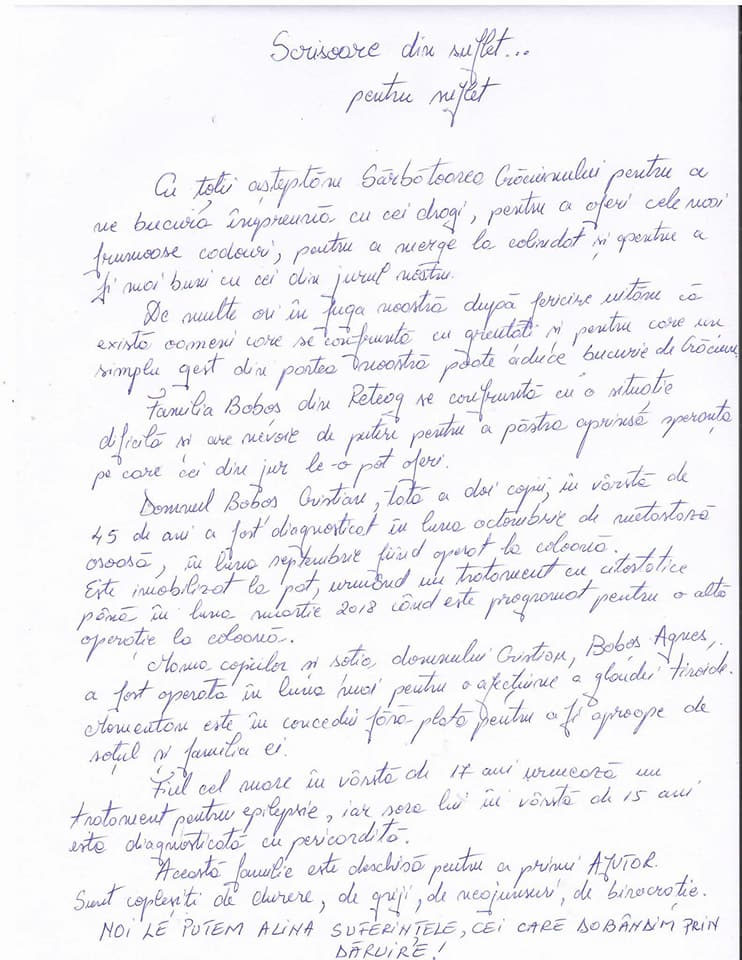 Scrisoare din suflet...
pentru suflet
Cu toții așteptăm Sărbătoarea Crăciunului pentru a
ne bucura împreună cu cei dragi, pentru a oferi cele mai
frumoase cadouri, pentru a merge la colindat și pentru a
fi mai buni cu cei din jurul nostru.
De multe ori în fuga noastră după fericire uităm că
există oameni care se confruntă cu greutăți și pentru care un
simplu gest din partea noastră poate aduce bucurie de Crăciun.
Familia Bobos din Reteag se confruntă cu o situație
dificilă si are nevoie de puteri pentru a păstra aprinsă speranța
pe care cei din jur le-o pot oferi.
Domnul Bobos Cristian, tată a doi copii, în vârstă de
45 de ani a fost diagnosticat în luna octombrie de metastază
osoasă, în luna septembrie fiind operat la coloană.
Este imobilizat la pat, urmând un tratament cu citostatice
până în luna martie 2018 când este programat pentru o altă
operatie la coloană.
Mama copiilor si sotia domnului Cristian, Bobos Agnes,
a fost operată în luna mai pentru o afecțiune a glandei tiroide.
Momentan este în concediu fără plată pentru a fi aproape de
soțul și familia ei.
Fiul cel mare în vârstă de 17 ani urmează un
tratament pentru epilepsie, iar sora lui în vârstă de 15 ani
este diagnosticată cu pericardită.
Această familie este deschisă pentru a primi AJUTOR.
Sunt coplesiti de durere, de griji, de neajunsuri, de birocratie.
NOI LE PUTEM ALINA SUFERINTELE, CEI CARE DOBÂNDIM PRIN
DĂRUIRE!